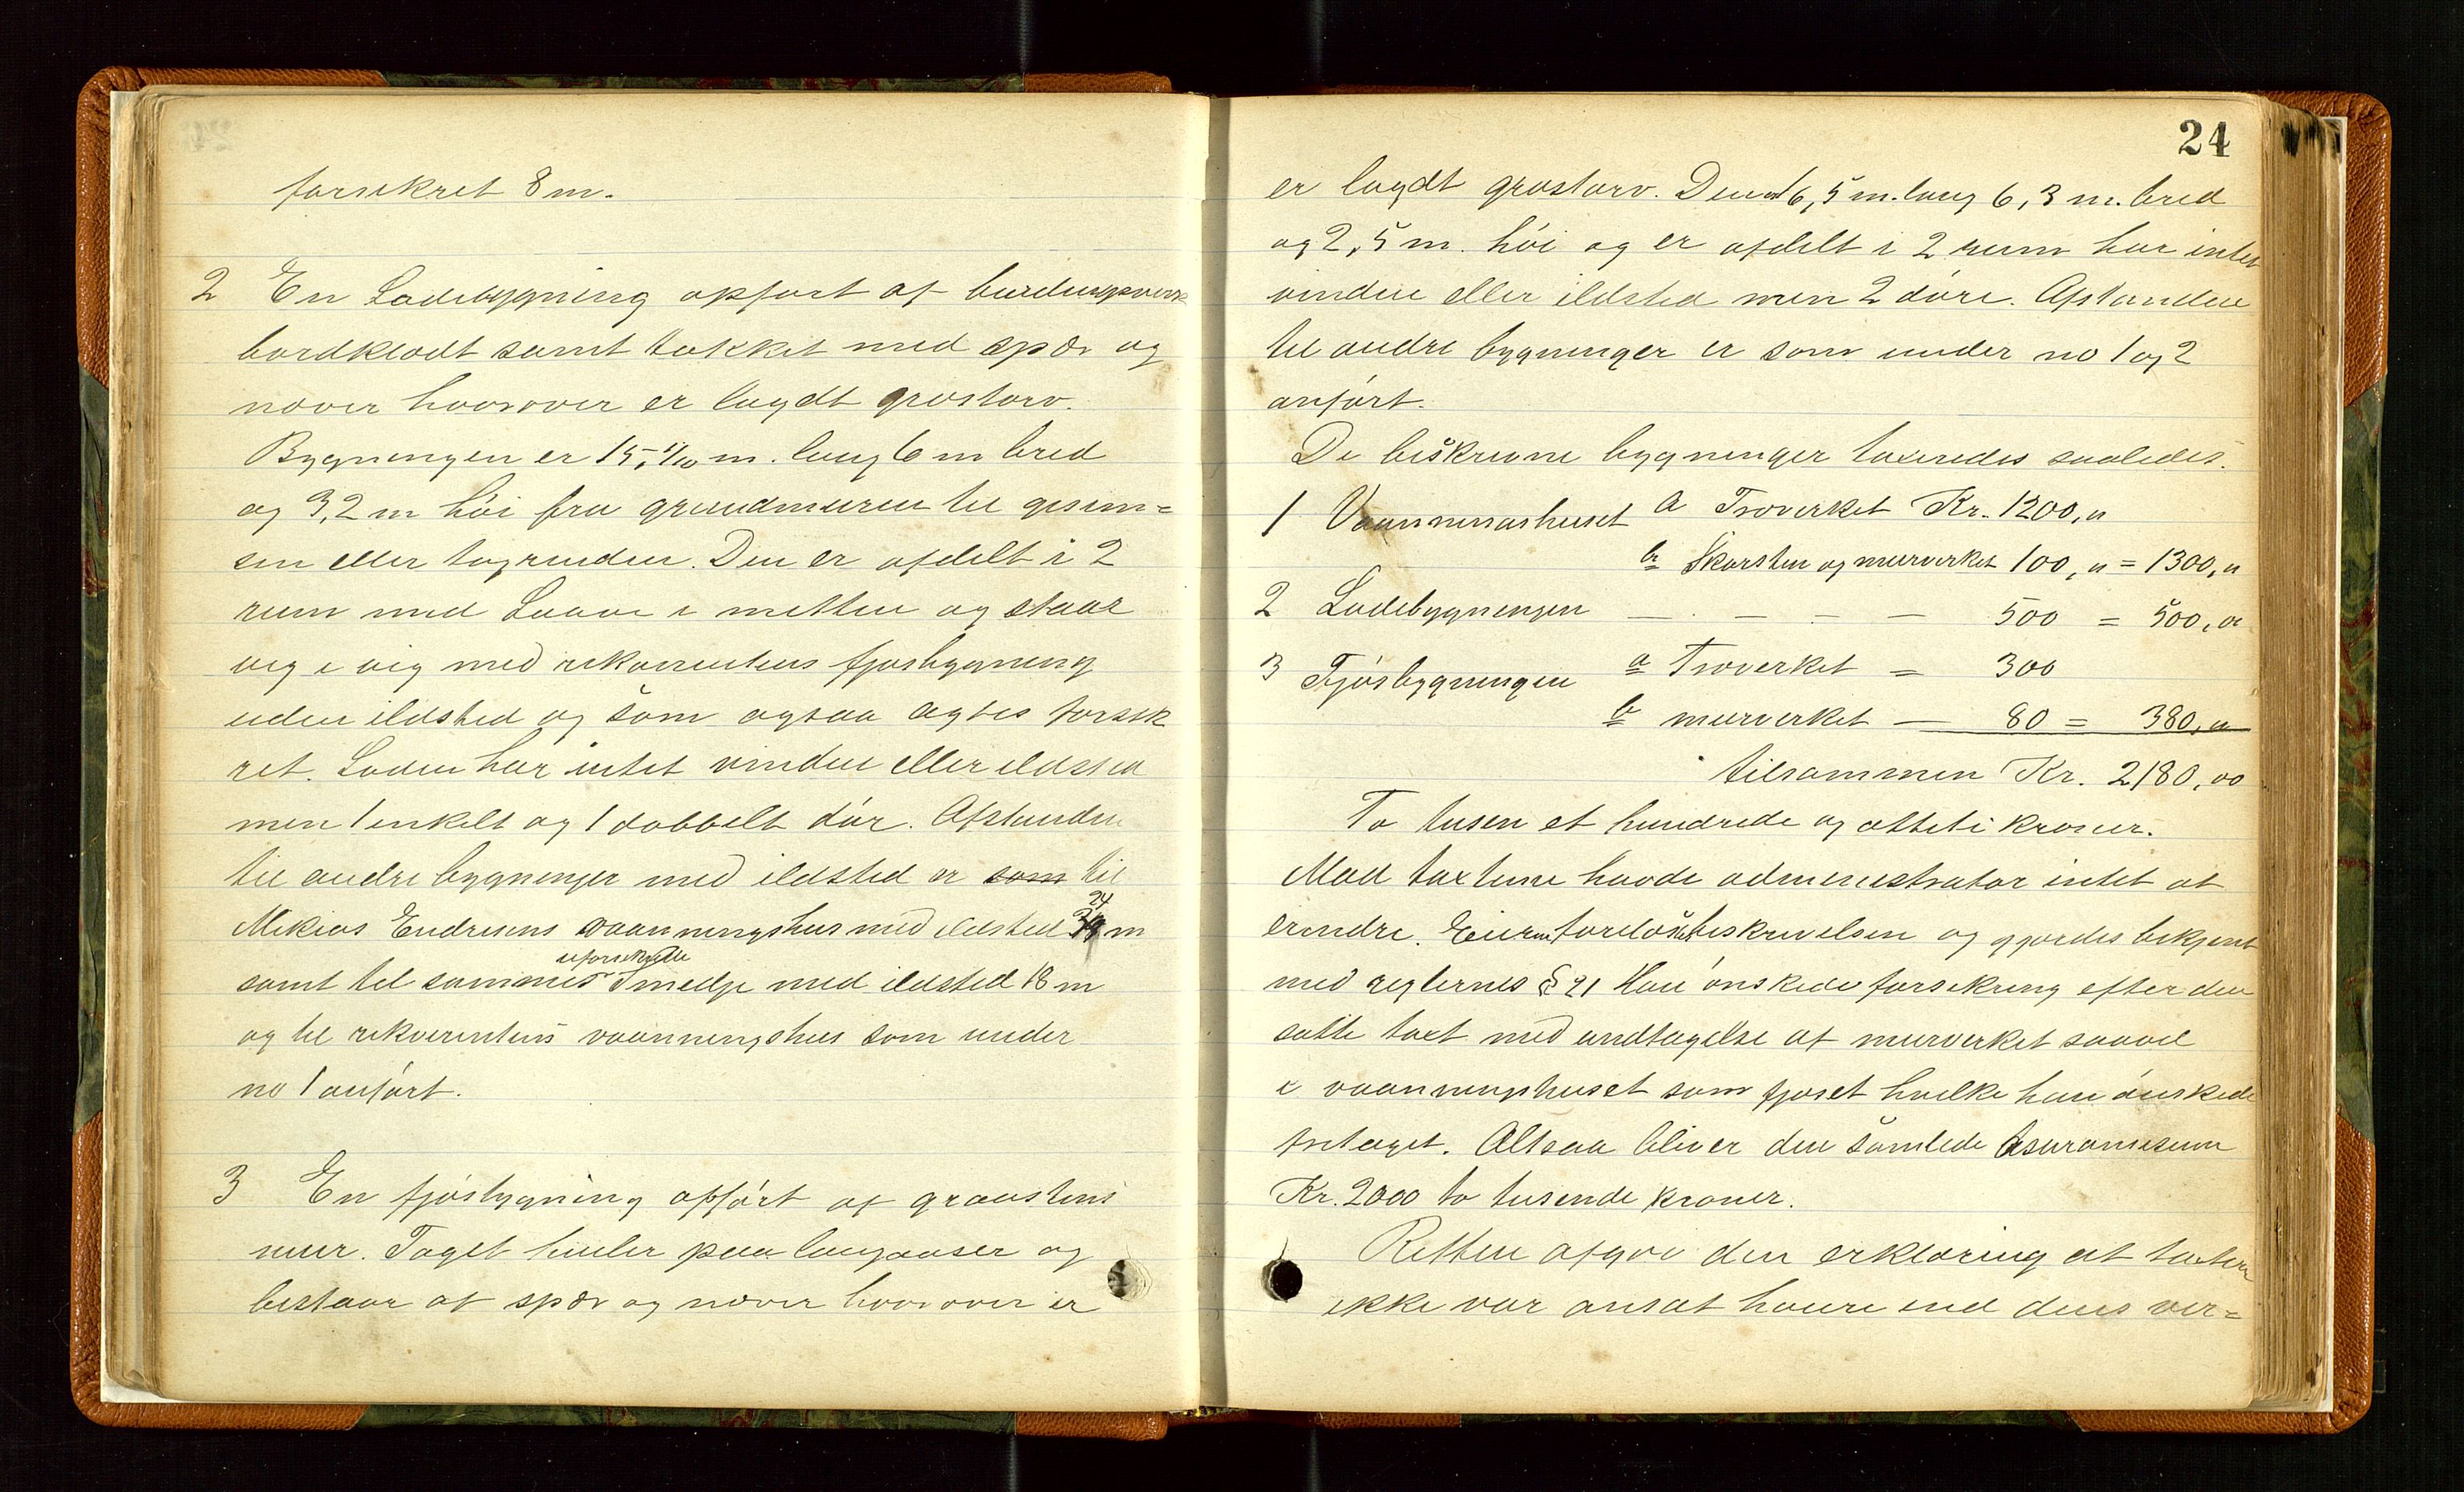 forsikret 8 m.
2 En Ladebygning opført af burdingsverk
bordklædt samt tækket med spær og
næver hvorover er lagdt græstorv.
Bygningen er 15,4/10 m. lang 6 m bred
og 3,2 m høi fra grundmuren til gesim=
sen eller tagrenden. Den er afdelt i 2
rum med Laave i mitten og staar
væg i væg med rekvirentens fjøsbygning
uden ildsted og som ogsaa agtes forsik
ret. Laden har intet vindue eller ildsted
men 1 enkelt og 1 dobbelt dør. Afstanden
til andre bygninger med ildsted er som til
Mikias Endresens vaaningshus med ildsted 24 m
samt til sammes uforsikrede Smedje med ildsted 18 m
og til rekverentens vaaningshus som under
no 1 anført.
3 En fjøsbygning opført af graastens
mur. Taget hviler paa langaaser og
bestaar af spær og næver hvorover er
24
er lagdt græstorv. Den er 6,5 m. lang 6,3 m. bred
og 2,5 m. høi og er afdelt i 2 rum har intet
vindue eller ildsted men 2 døre. Afstanden
til andre bygninger er som under no 1 og 2
anført.
De beskrevne bygninger taxeredes saaledes.
1 Vaanningshuset a Træverket Kr. 1200,"
b Skorsten og murverket 100," = 1300,"
2 Ladebygningen — — — — 500 = 500,00
3 Fjøsbygningen a Træverket = 300
b murverket — 80 = 380,"
tilsammen Kr. 2180,00
To tusen et hundrede og otteti kroner.
Mod taxterne havde administrator intet at
erindre. Eieren forelæstes beskrivelsen og gjordes bekjent
med reglernes § 21 Han ønskede forsikring efter den
satte taxt med undtagelse af murverket saavel
i vaanningshuset som fjøset hvilke han ønskede
fritaget. Altsaa bliver den samlede Assuransesum
Kr. 2000 to tusende kroner.
Retten afgav den erklæring at taxten
ikke var ansat høiere end dens ver=